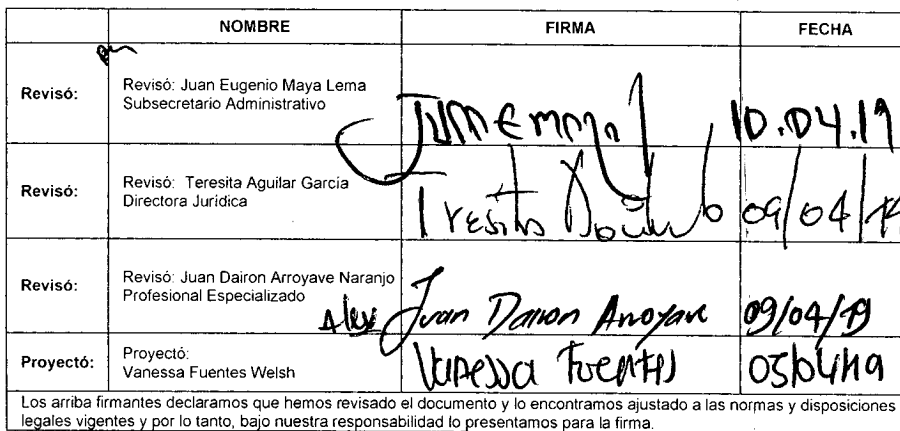 NOMBRE FIRMA FECHA
Revisó: Revisó: Juan Eugenio Maya Lema
Subsecretario Administrativo
10.04.19
Revisó: Revisó: Teresita Aguilar García
Directora Jurídica
09/04/19
Revisó: Revisó: Juan Dairon Arroyave Naranjo
Profesional Especializado
Alex Juan Dairon Arroyave 09/04/19
Proyectó: Proyectó:
Vanessa Fuentes Welsh
Vanessa Fuentes 05/04/19
Los arriba firmantes declaramos que hemos revisado el documento y lo encontramos ajustado a las normas y disposiciones
legales vigentes y por lo tanto, bajo nuestra responsabilidad lo presentamos para la firma.